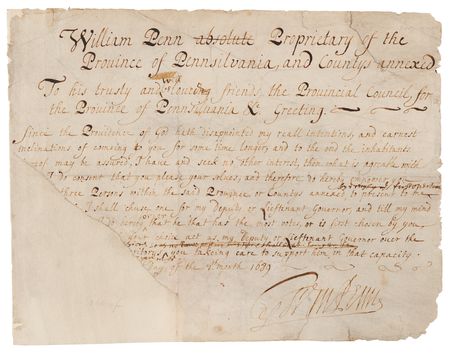 William Penn absolute Proprietary of the
Province of Pennsilvania, and Countys annexed
To his trusty and loveing friends the Provincial Council, for
the Province of Pennsilvania &. Greeting.
Since the Providence of God hath disapointed my reall intentions, and earnest
inclinations of comeing to you, for some time longer, and to the end the inhabitants
may be assured, I have and seek no other interest, then what is agreable with
I do consent that you please your selves, and therefore do hereby empower you
three Persons within the said Province or Countys annexed to present to me
I shall chuse one for my Deputy or Lieftenant Governor, and till my mind
that he that has the most votes, or is first chosen by you
act as my Deputy or Lieftenant Governor over the
you takeing care to support him in that capacity.
of the month 1689
Wm Penn